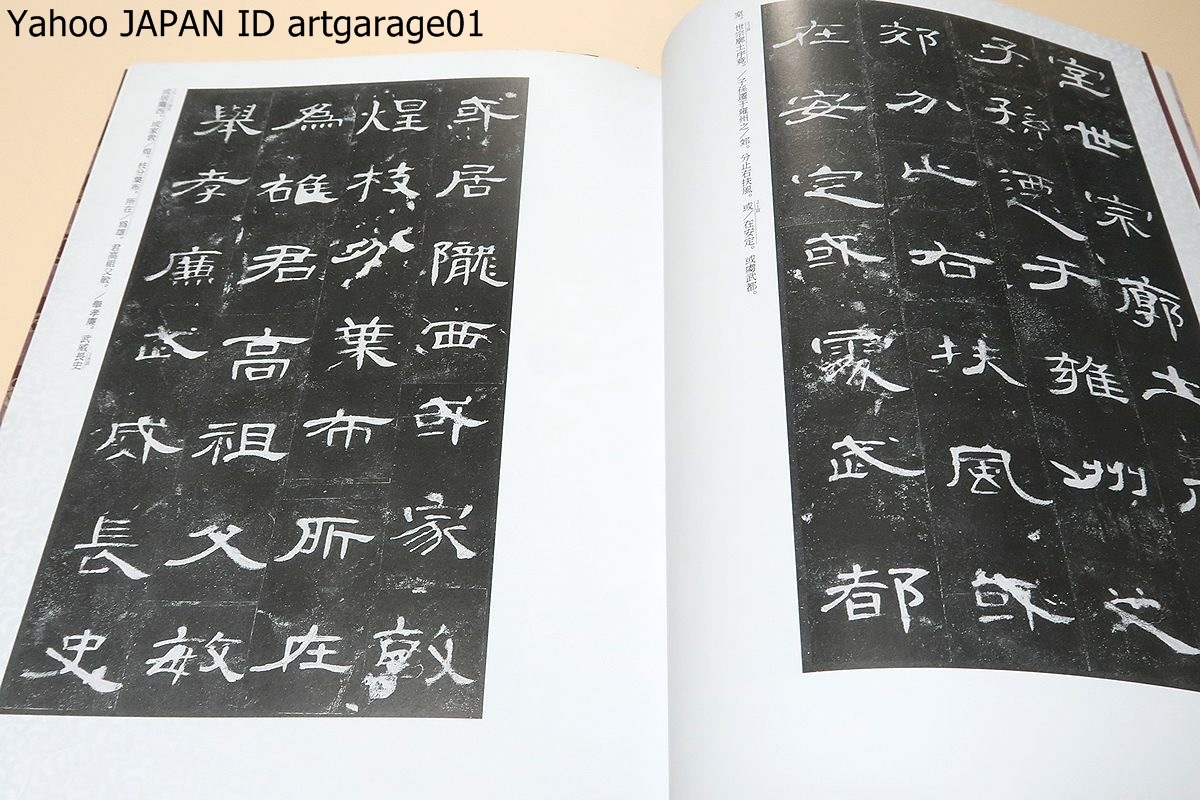 Yahoo JAPAN ID artgarage01
室世宗廓土
子孫遷于雍州之
郊分止右扶風或
在安定或處武都
室。世宗廓土斥竟。／子孫遷于雍州之／郊。分止右扶風。或／在安定。或處武都。
或居隴西或家敦
煌枝分葉布所在
為雄君高祖父敏
舉孝廉武威長史
或居隴西。或家敦／煌。枝分葉布。所在／爲雄。君高祖父敏。／擧孝廉。武威長史